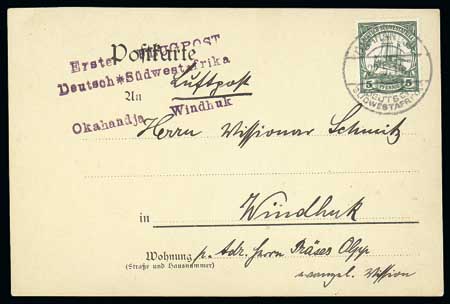 Postkarte
Erste FLUGPOST
Deutsch*Südwestafrika
Okahandja Windhuk
An Luftpost
Herrn Missionar Schmitz
in Windhuk
Wohnung p. Adr. Herrn Präses Olpp
(Straße und Hausnummer)
evangel. Mission
DEUTSCH-SÜDWESTAFRIKA
5 PFENNIG 5
DEUTSCH-
SÜDWESTAFRIKA